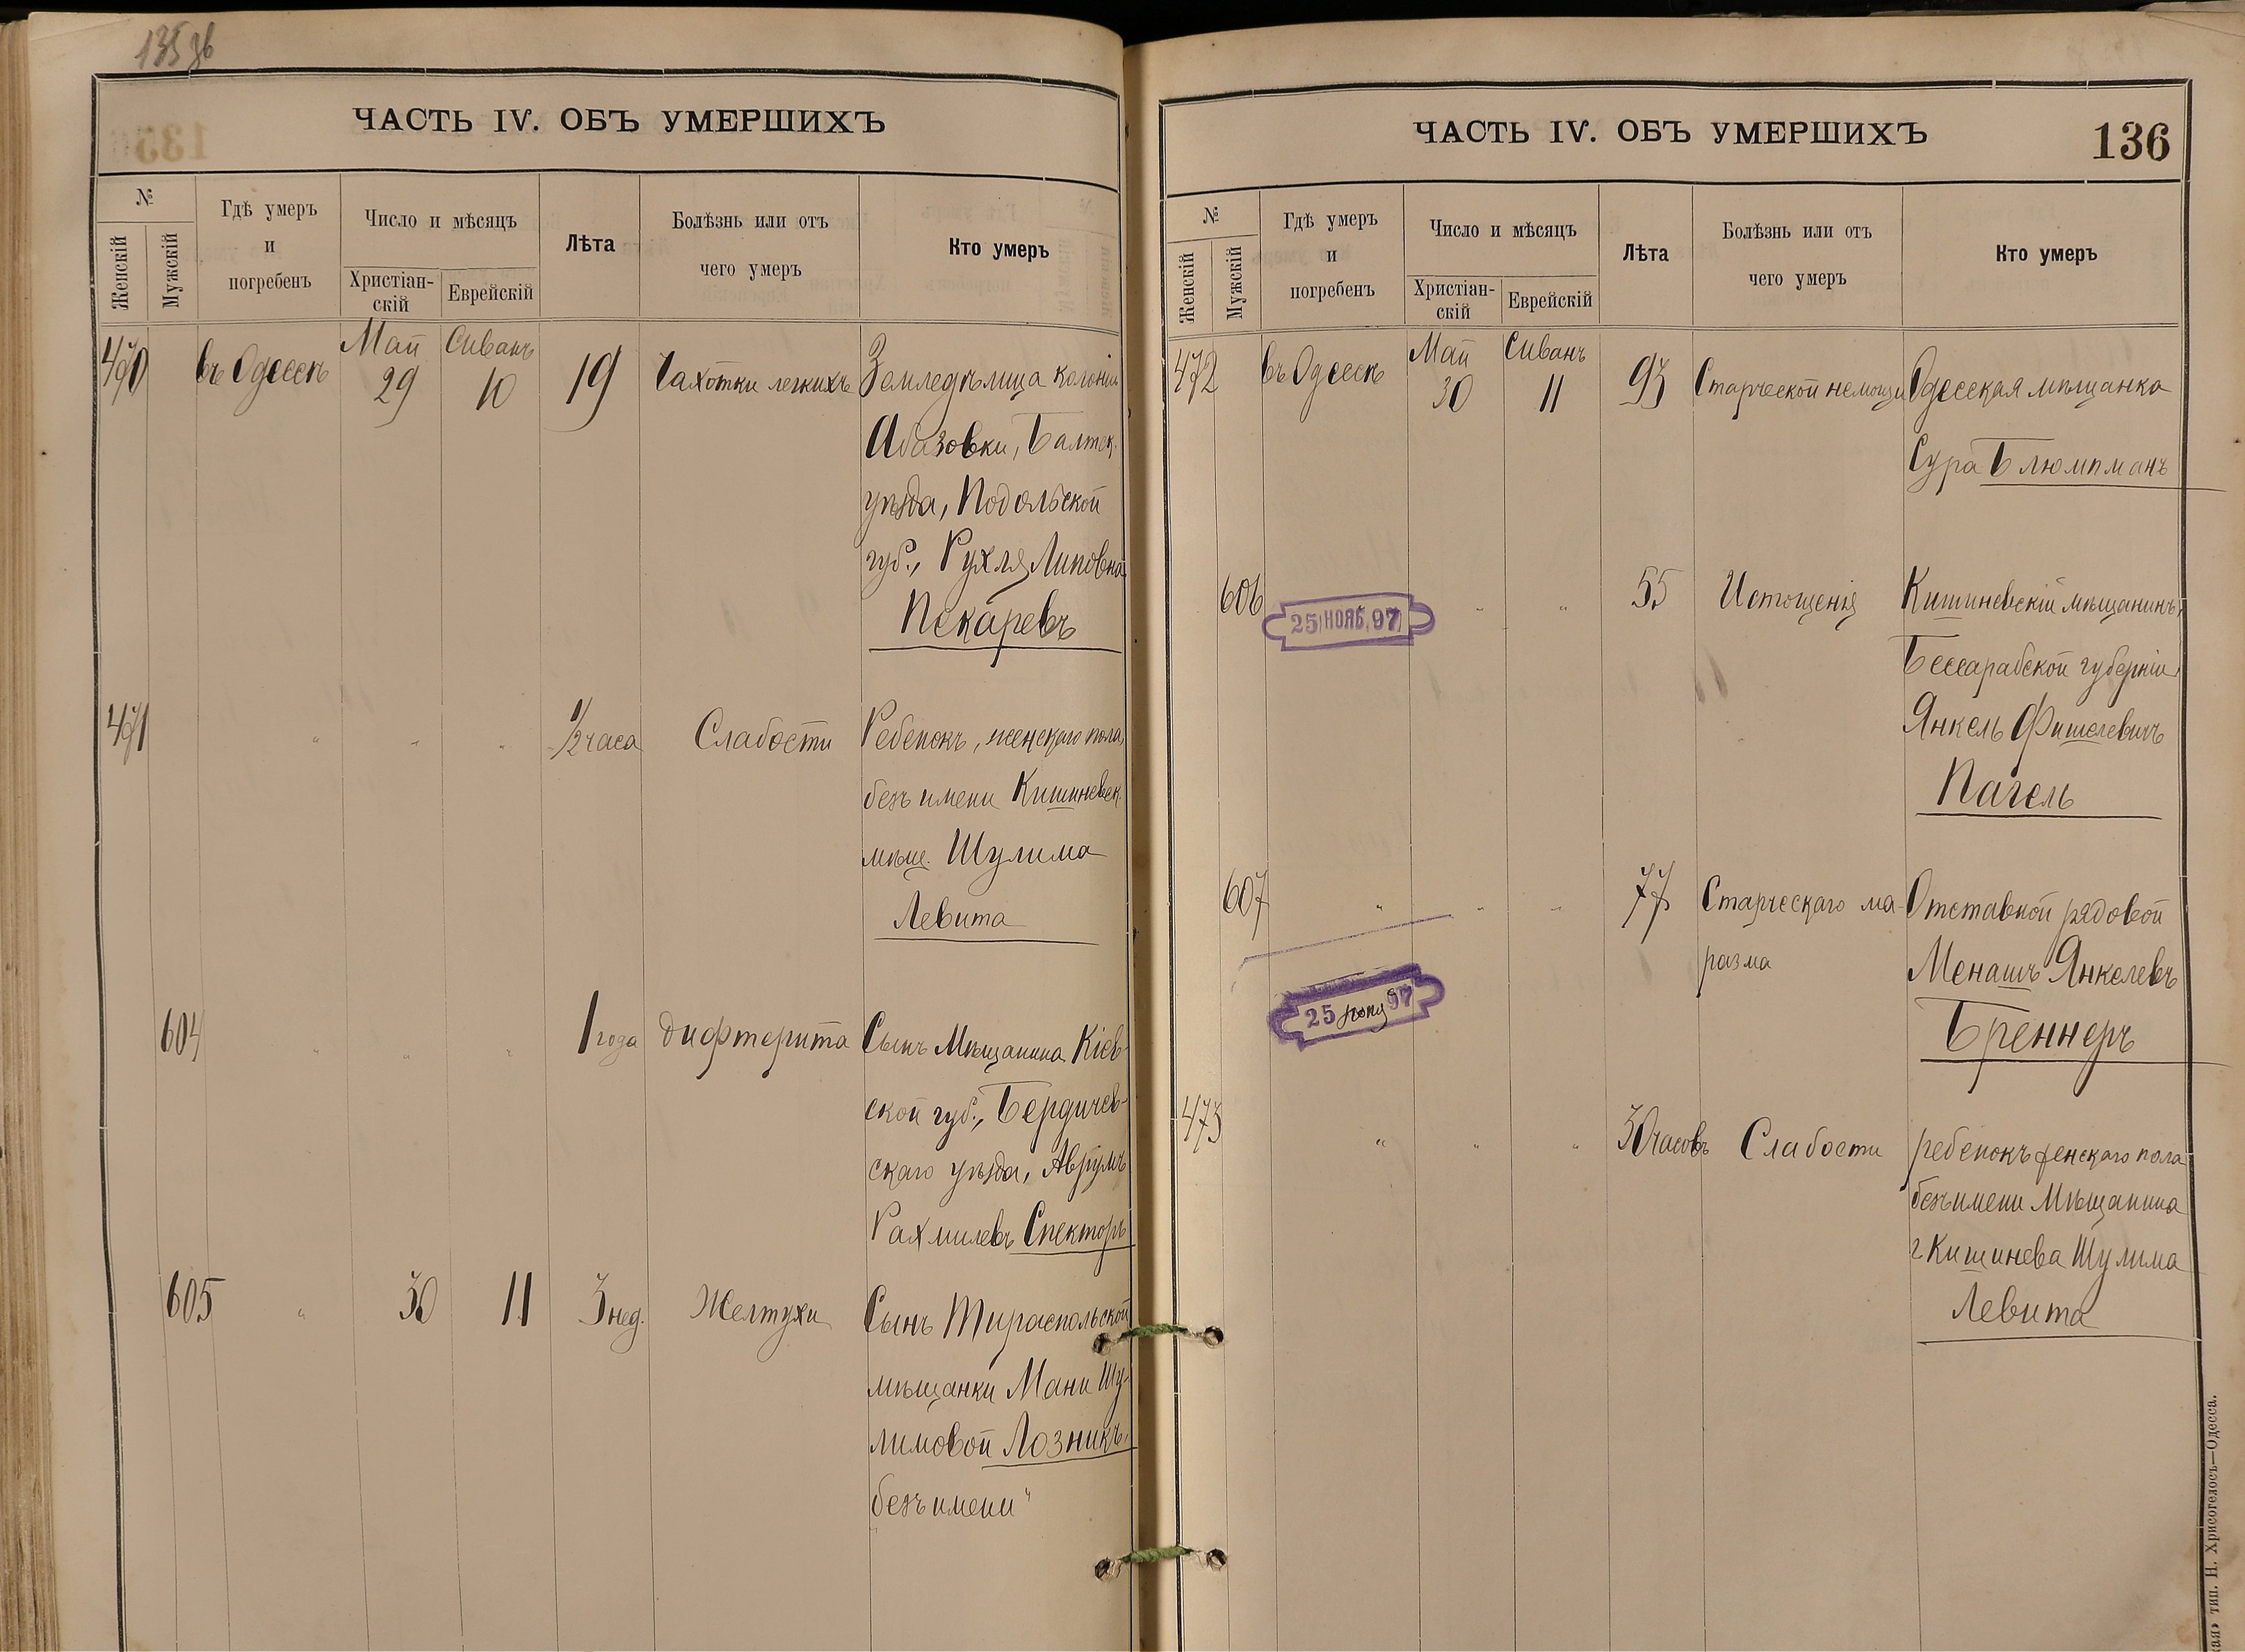 135 об
ЧАСТЬ IV. ОБЪ УМЕРШИХЪ
№
Женскій
Мужскій
Гдѣ умеръ
и
погребенъ
Число и мѣсяцъ
Христіан-
скій
Еврейскій
Лѣта
Болѣзнь или отъ
чего умеръ
Кто умеръ
470 въ Одессѣ Май 29 Сиванъ 10 19 Чахотки легкихъ Земледѣлица колоніи
Абазовки, Балтск.
уѣзда, Подольской
губ., Рухля Липовна
Пекаревъ
471 " " " 1/2 часа Слабости Ребенокъ, женскаго пола,
безъ имени Кишиневск.
мѣщ. Шулима
Левита
604 " " " 1 года Дифтерита Сынъ Мѣщанина Кіев-
ской губ., Бердичев-
скаго уѣзда, Аврумъ
Рахмилевъ Спекторъ
605 " 30 11 3 нед. Желтухи Сынъ Тираспольской
мѣщанки Мани Шу-
лимовой Лозникъ,
безъ имени"
ЧАСТЬ IV. ОБЪ УМЕРШИХЪ
136
№
Женскій
Мужскій
Гдѣ умеръ
и
погребенъ
Число и мѣсяцъ
Христіан-
скій
Еврейскій
Лѣта
Болѣзнь или отъ
чего умеръ
Кто умеръ
472 въ Одессѣ Май 30 Сиванъ 11 93 Старческой немощи Одесская мѣщанка
Сура Блюмпманъ
606 " " 55 Истощенія Кишиневскій мѣщанинъ,
25 НОЯБ. 97
Бессарабской губерніи,
Янкель Фишелевичъ
Пагель
607 " " " 77 Старческаго ма- Отставной рядовой
разма Менашъ Янкелевъ
25 97
Бреннеръ
473 " " " 30 часовъ Слабости ребенокъ женскаго пола
безъ имени Мѣщанина
г. Кишинева Шулима
Левита
тип. Н. Хрисогелосъ—Одесса.